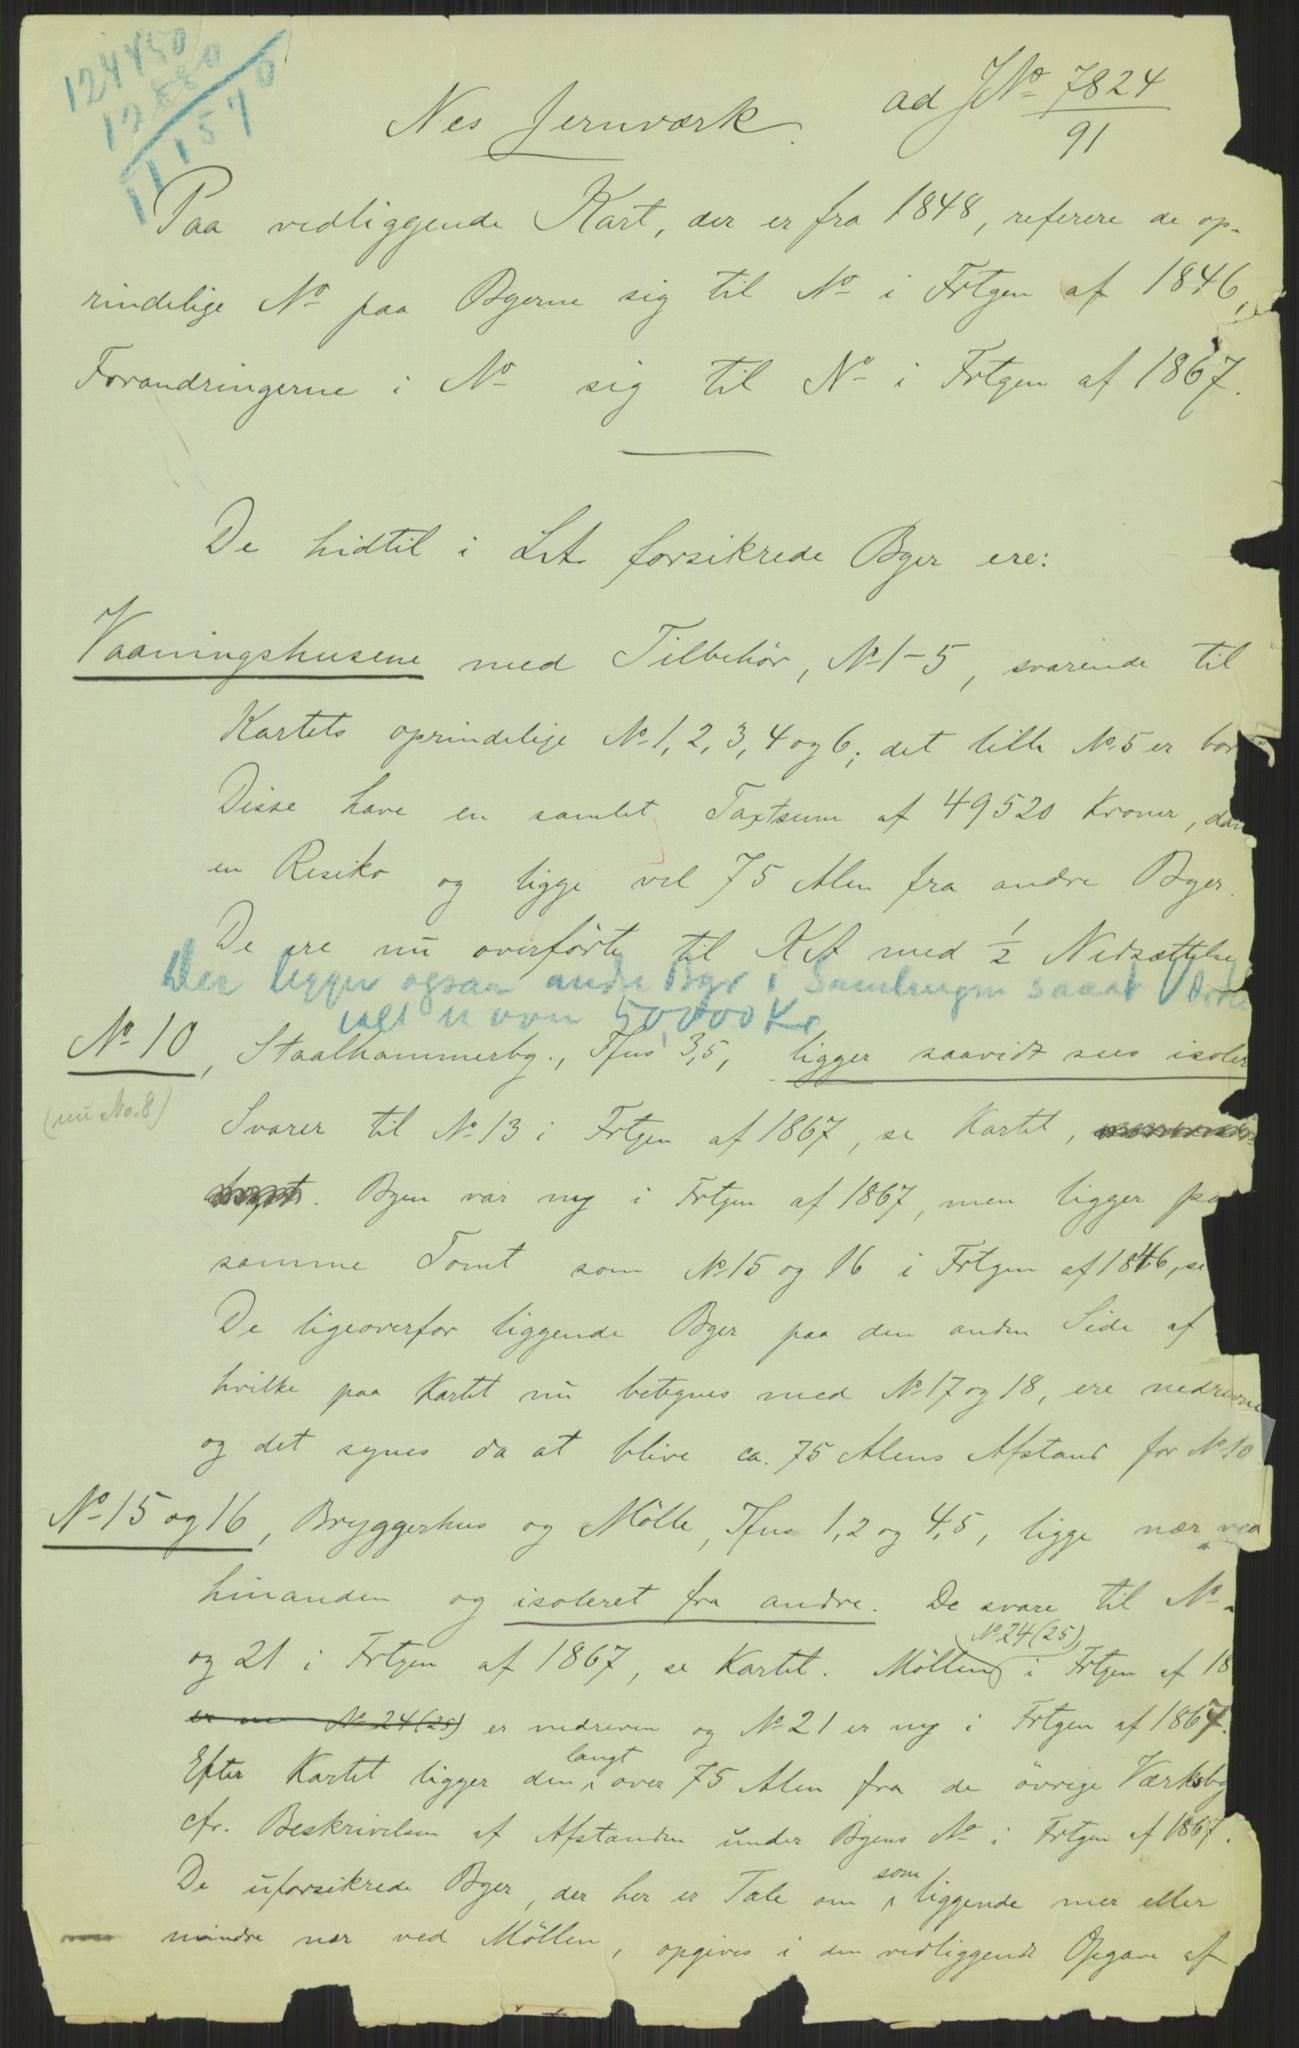 124450
12880
111570
Nes Jernværk.
ad JNo 7824
91
Paa vedliggende Kart, der er fra 1848, referere de op-
rindelige No paa Bgerne sig til No i Frtgen af 1846,
Forandringerne i No sig til No i Frtgen af 1867.
De hidtil i LA forsikrede Bger ere:
Vaaningshusene med Tilbehør, No 1-5, svarende til
Kartets oprindelige No 1, 2, 3, 4 og 6; det lille No 5 er bor
Disse have en samlet Taxtsum af 49520 Kroner, dan
en Resiko og ligge vel 75 Alen fra andre Bger.
De ere nu overførte til KA med 1/2 Nedsættelse
Der ligger ogsaa andre Bgr i Samlingen saaat
ialt er over 50,000 Kr
No 10, Staalhammerbg., Ffus 3,5, ligger saavidt sees isoler
(nu No. 8)
Svarer til No 13 i Frtgen af 1867, se Kartet,
Bgen var ny i Frtgen af 1867, men ligger pa
samme Tomt som No 15 og 16 i Frtgen af 1846, se
De ligeoverfor liggende Bger paa den anden Side af
hvilke paa Kartet nu betegnes med No 17 og 18, ere nedrevne
og det synes da at blive ca. 75 Alens Afstand for No 10
No 15 og 16, Bryggerhus og Mölle, Ffus 1,2 og 4,5, ligge nær ved
hinanden og isoleret fra andre. De svare til No
No 24 (25)
og 21 i Frtgen af 1867, se Kartet. Möllen i Frtgen af 18
er nu No 24 (25) er nedreven og No 21 er ny i Frtgen af 1867.
langt
Efter Kartet ligger den over 75 Alen fra de övrige Værksbg
cfr. Beskrivelsen af Afstanden under Bgens No i Frtgen af 1867.
som
De uforsikrede Bger, der her er Tale om liggende mer eller
mindre nær ved Möllen, opgives i den vedliggende Opgave af